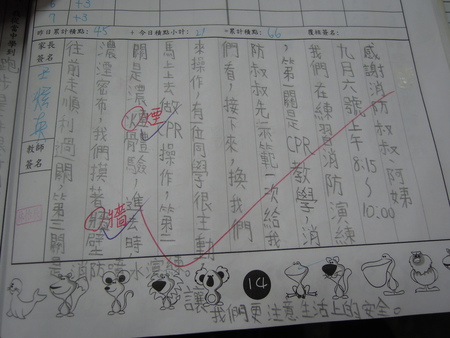 +3
7 +3
昨日累計積點：45 + 今日積點小計：21 =累計積點：66
家長簽名
教師簽名
感謝消防叔叔、阿姨
九月六號上午8:15~10:00
我們在練習消防演練
，第一關是CPR教學，消
防叔叔先示範一次給我
們看，接下來，換我們
來操作，有一位同學很主動
馬上去做CPR操作，第二
關是濃煙體驗，進去時
濃煙密布，我們摸著牆壁
往前走順利過關，第三關是
消防
水
讓我們更注意生活上的安全。
14